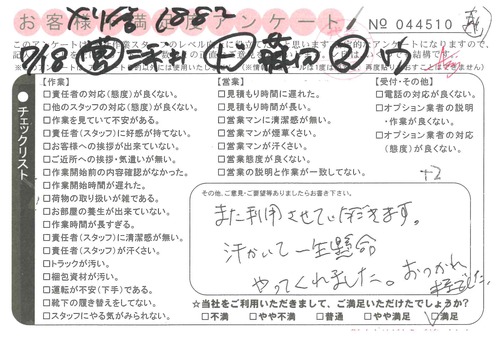 お客様満足度アンケート
No 044510
6882
7/8
【作業】
□責任者の対応(態度)が良くない。
□他のスタッフの対応(態度)が良くない。
□作業を見ていて不安がある。
□責任者(スタッフ)に好感が持てない。
□お客様への挨拶が出来ていない。
□ご近所への挨拶・気遣いが無い。
□作業開始前の内容確認がなかった。
□作業開始時間が遅れた。
□荷物の取り扱いが雑である。
□お部屋の養生が出来ていない。
□作業時間が長すぎる。
□責任者(スタッフ)に清潔感が無い。
□責任者(スタッフ)が汗くさい。
□トラックが汚い。
□梱包資材が汚い。
□運転が不安(下手)である。
□靴下の履き替えをしてない。
□スタッフにやる気がみられない。
チェックリスト
【営業】
□見積もり時間に遅れた。
□見積もり時間が長い。
□営業マンに清潔感が無い。
□営業マンが煙草くさい。
□営業マンが汗くさい。
□営業態度が良くない。
□営業の説明と作業が一致してない。
【受付・その他】
□電話の対応が良くない。
□オプション業者の説明
・作業が良くない。
□オプション業者の対応
(態度)が良くない。
+2
その他、ご意見・ご要望等ありましたらお書き下さい。
また利用させていただきます。
汗かいて一生懸命
やってくれました。おつかれ
様でした。
☆当社をご利用いただきまして、ご満足いただけたでしょうか?
□不満 □やや不満 □普通 □やや満足 □満足